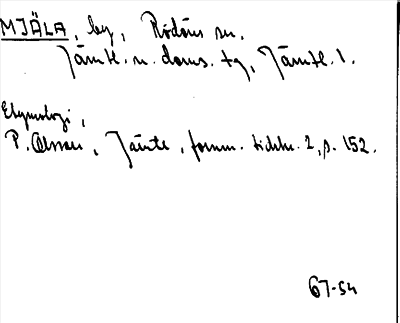 MJÄLA, by, Rödöns sn.
Jämtl. n. doms. tg, Jämtl. l.
Etymologi,
P. Olsson, Jämte, fornm. tidskr. 2, s. 152.
67-54